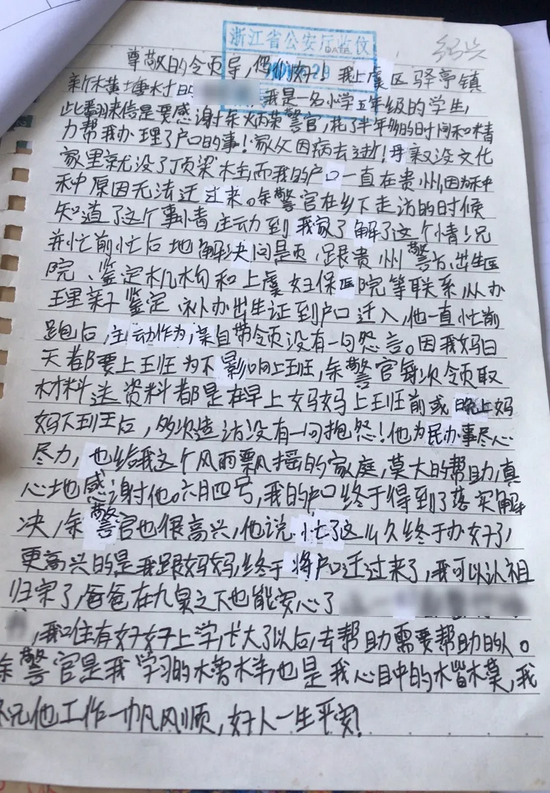 浙江省公安厅收仪
绍兴
尊敬的令页导,您们好!我上虞区驿亭镇
新木黄士垂木寸日
我是一名小学五年级的学生,
此番来信是要感谢余火丙荣警官,花了半年多的时间和精
力帮我办理了户口的事!家父因病去逝!母亲没文化
家里就没了顶梁木主,而我的户口一直在贵州,因为种
种中原因无法迁过来。余警官在乡下走访的时候
知道了这个事情主动到我家了解了这个情况
并忙前忙后地解决问是页,跟贵州警方,出生医
院、鉴定机构和上虞妇保医院等联系,从办
理亲子鉴定、补办出生证到户口迁入,他一直忙前
跑后,主动作为,亲自带领页没有一句怨言。因我妈白
天都要上王班为不影响上班,余警官每次领取
材料送资料都是在早上妈妈上班前或晚上妈
妈下班后,多次造访没有一句抱怨!他为民办事尽心
尽力,也给我这个风雨飘摇的家庭,莫大的帮助,真
心地感谢他。六月四号,我的户口终于得到了落实解
决,余警官也很高兴,他说忙了这么久终于办好了,
更高兴的是我跟妈妈,终于将户口迁过来了,我可以认祖
归宗了,爸爸在九泉之下也能安心了
,我口住有好好上学,长大了以后,去帮助需要帮助的人。
余警官是我学习的木榜木羊,也是我心目中的木皆木莫,我
祝他工作一帆风顺,好人一生平安!